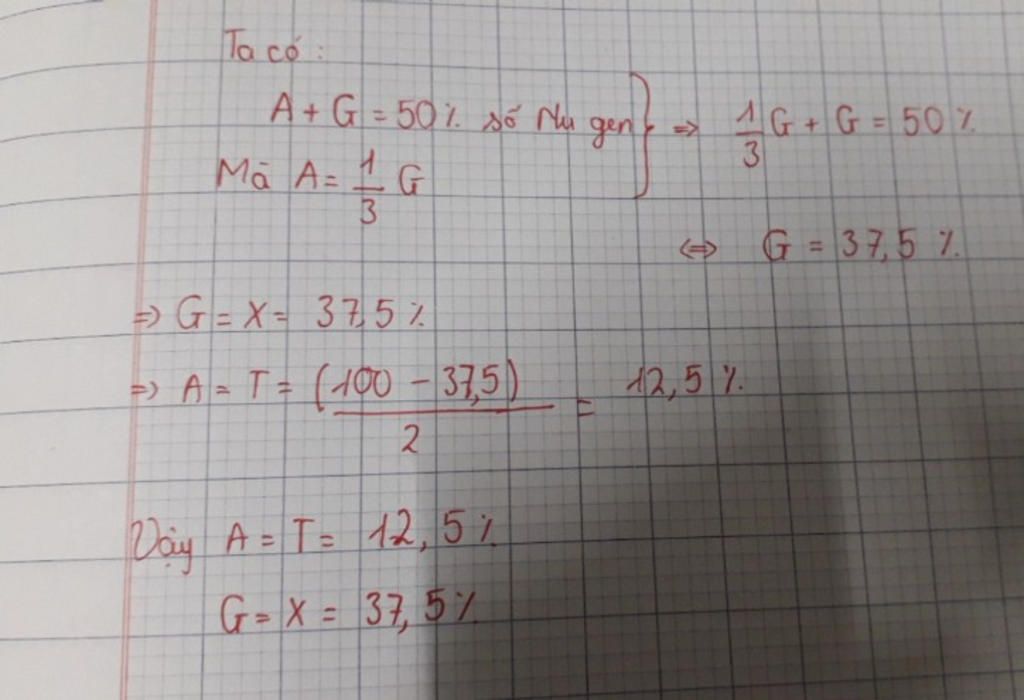 Ta có:
A + G = 50% số Nu gen } => 1/3 G + G = 50%
Mà A = 1/3 G
<=> G = 37,5 %
=> G = X = 37,5 %
=> A = T = (100 - 37,5)/2 = 12,5 %
Vậy A = T = 12,5 %
G = X = 37,5 %